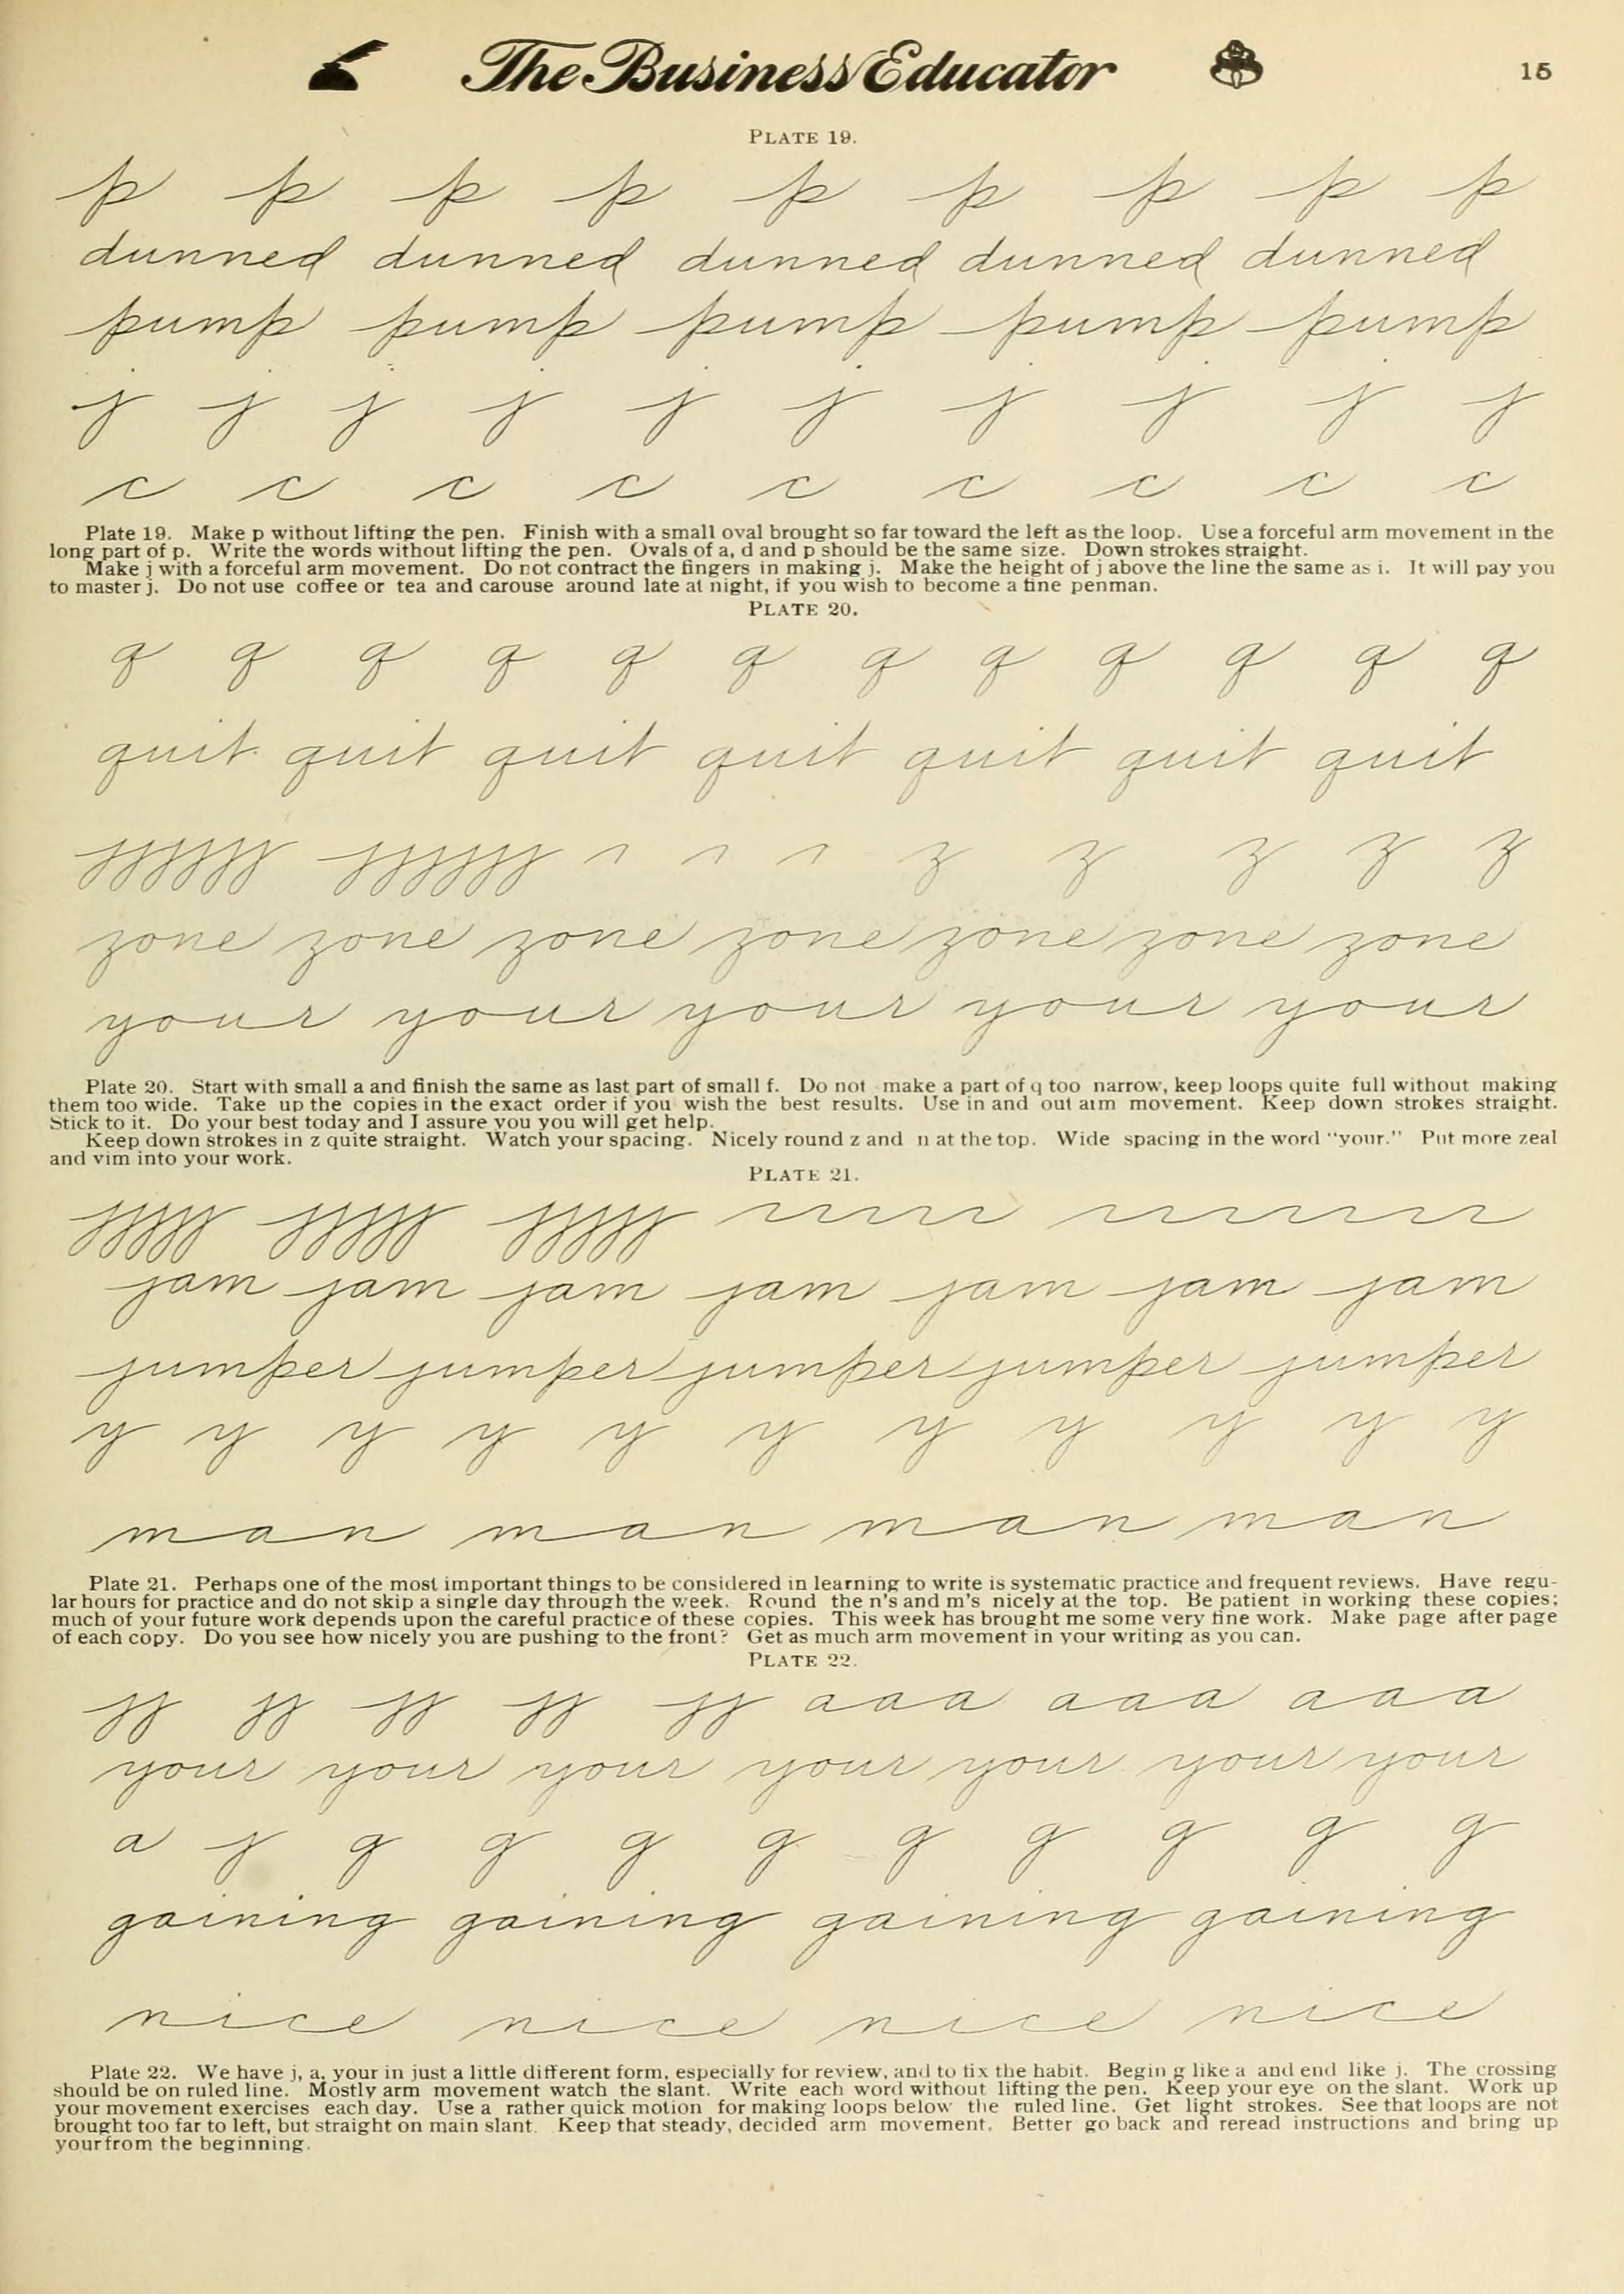 The Business Educator 15
PLATE 19.
p p p p p p p p p
dunned dunned dunned dunned dunned
pump pump pump pump pump
j j j j j j j j j j
c c c c c c c c c
Plate 19. Make p without lifting the pen. Finish with a small oval brought so far toward the left as the loop. Use a forceful arm movement in the
long part of p. Write the words without lifting the pen. Ovals of a, d and p should be the same size. Down strokes straight.
Make j with a forceful arm movement. Do not contract the fingers in making j. Make the height of j above the line the same as i. It will pay you
to master j. Do not use coffee or tea and carouse around late at night, if you wish to become a fine penman.
PLATE 20.
q q q q q q q q q q q q
quit quit quit quit quit quit quit
z z z z z
zone zone zone zone zone zone zone
your your your your your
Plate 20. Start with small a and finish the same as last part of small f. Do not make a part of q too narrow, keep loops quite full without making
them too wide. Take up the copies in the exact order if you wish the best results. Use in and out arm movement. Keep down strokes straight.
Stick to it. Do your best today and I assure you you will get help.
Keep down strokes in z quite straight. Watch your spacing. Nicely round z and n at the top. Wide spacing in the word "your." Put more zeal
and vim into your work.
PLATE 21.
jjjjj jjjjj jjjjj
jam jam jam jam jam jam jam
jumper jumper jumper jumper jumper
y y y y y y y y y y y
man man man man
Plate 21. Perhaps one of the most important things to be considered in learning to write is systematic practice and frequent reviews. Have regu-
lar hours for practice and do not skip a single day through the week. Round the n's and m's nicely at the top. Be patient in working these copies;
much of your future work depends upon the careful practice of these copies. This week has brought me some very fine work. Make page after page
of each copy. Do you see how nicely you are pushing to the front? Get as much arm movement in your writing as you can.
PLATE 22.
jj jj jj jj jj aaa aaa aaa
your your your your your your your
a j g g g g g g g g g
gaining gaining gaining gaining
nice nice nice nice
Plate 22. We have j, a, your in just a little different form, especially for review, and to fix the habit. Begin g like a and end like j. The crossing
should be on ruled line. Mostly arm movement watch the slant. Write each word without lifting the pen. Keep your eye on the slant. Work up
your movement exercises each day. Use a rather quick motion for making loops below the ruled line. Get light strokes. See that loops are not
brought too far to left, but straight on main slant. Keep that steady, decided arm movement. Better go back and reread instructions and bring up
your from the beginning.